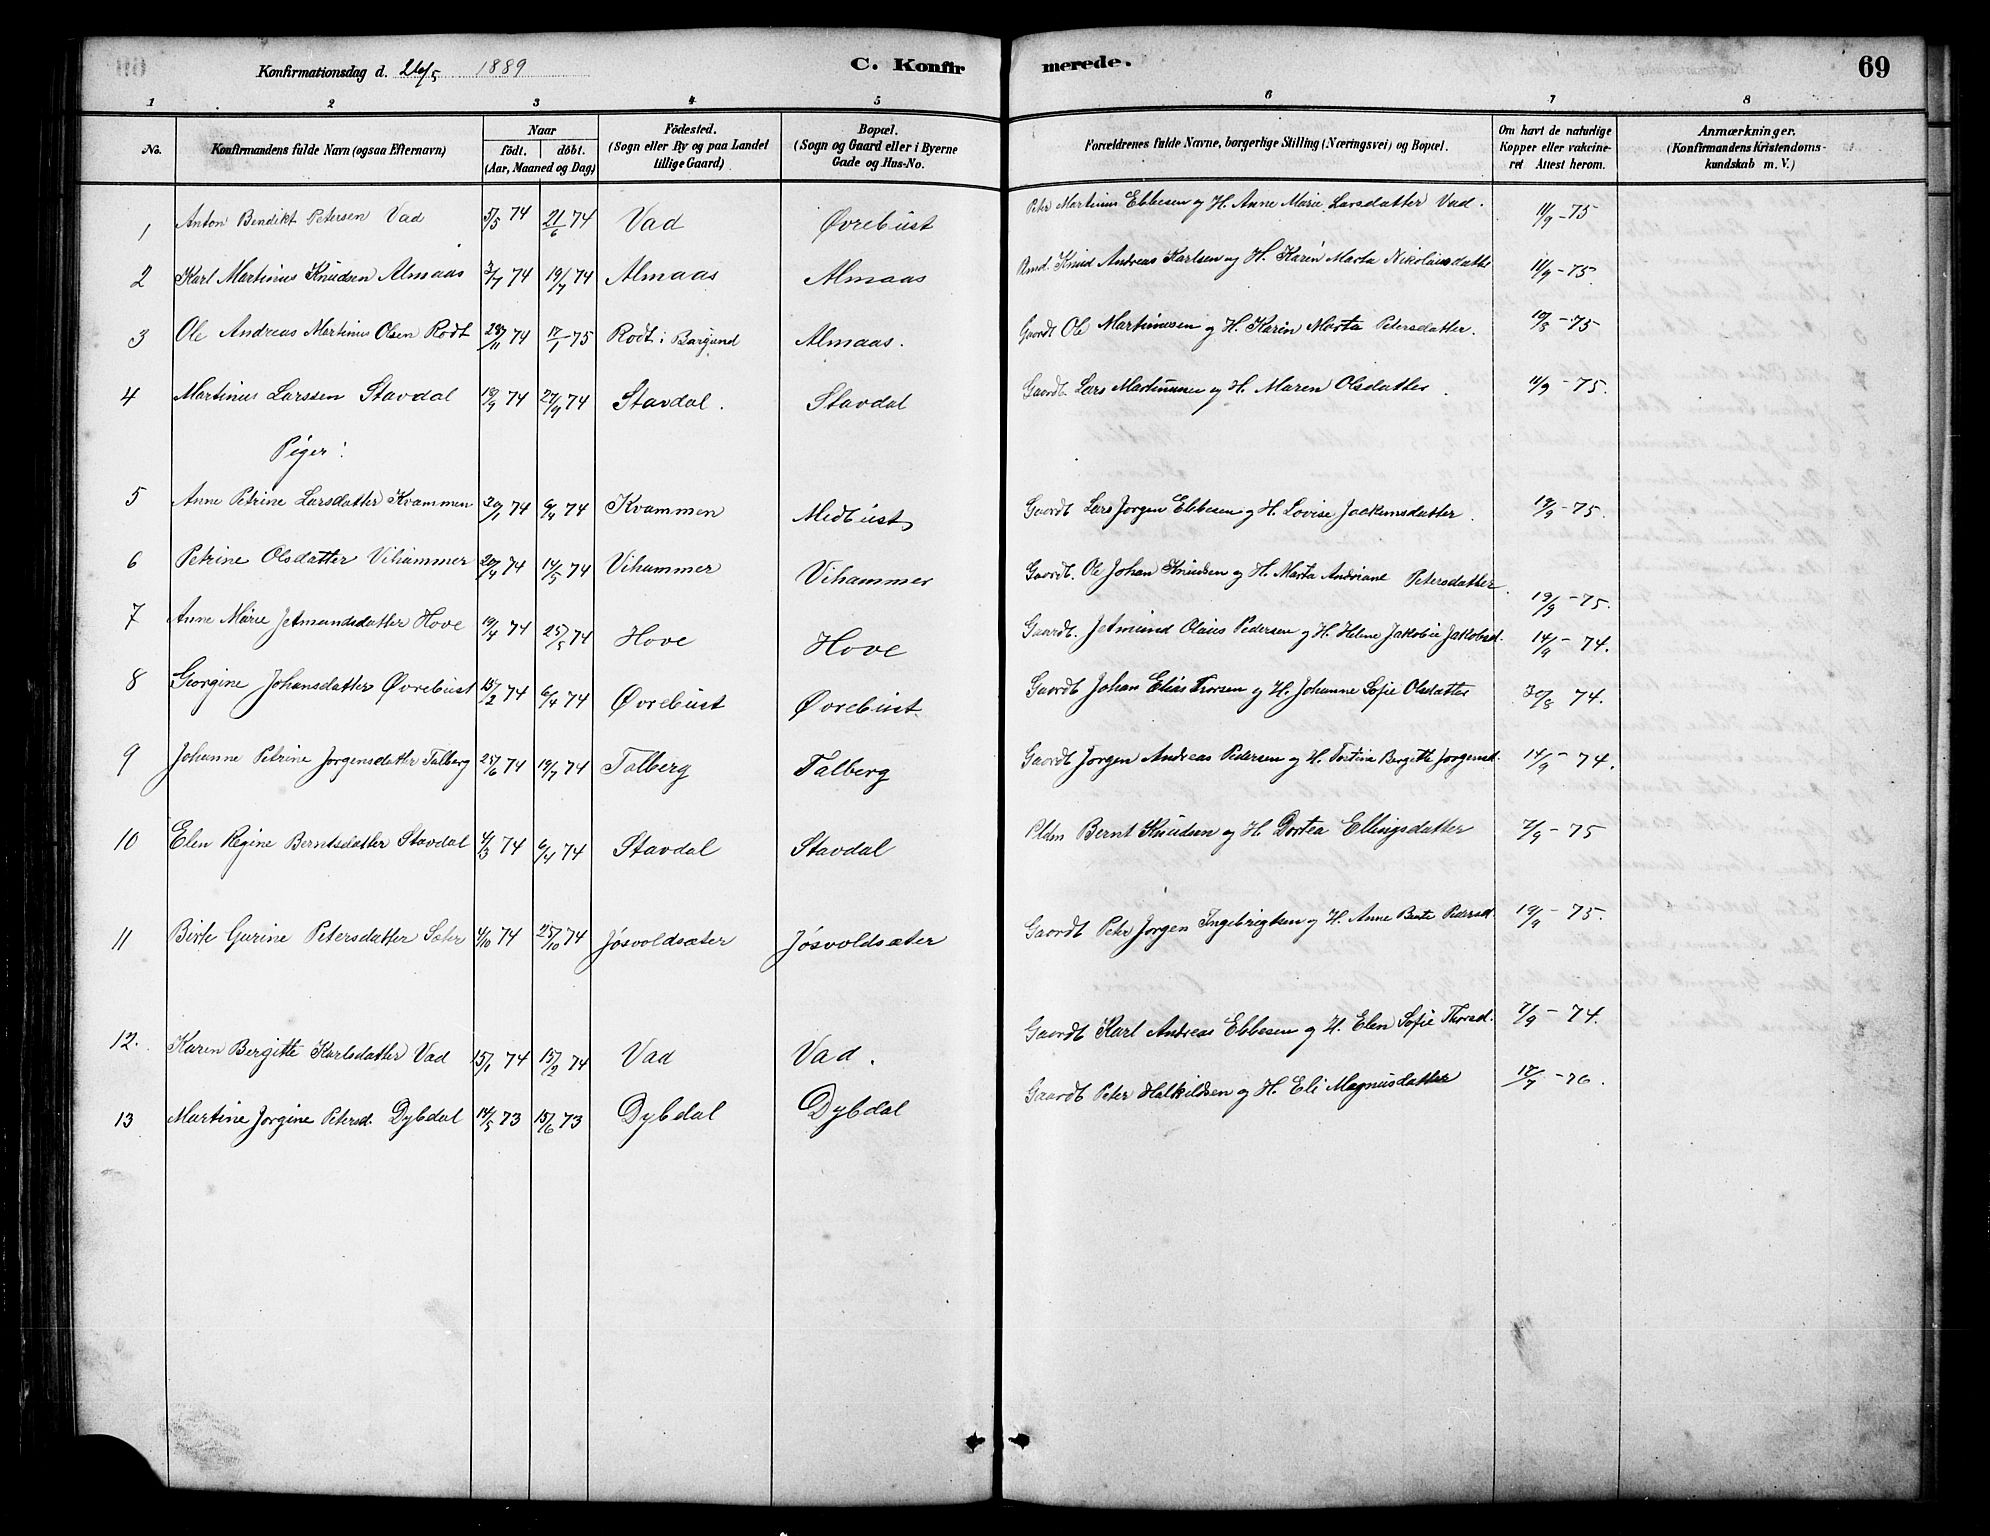 Konfirmationsdag d. 26/5 1889
C. Konfirmerede.
69
1 2 3 4 5 6 7 8
No.
Konfirmandens fulde Navn (ogsaa Efternavn)
Naar
födt. döbt.
(Aar, Maaned og Dag)
Födested.
(Sogn eller By og paa Landet tillige Gaard)
Bopæl.
(Sogn og Gaard eller i Byerne Gade og Hus-No.
Forældrenes fulde Navne, borgerlige Stilling (Næringsvei) og Bopæl.
Om havt de naturlige Kopper eller vakcineret Attest herom.
Anmærkninger.
(Konfirmandens Kristendomskundskab m. V.)
1 Anton Bendikt Petersen Vad 5/5 74 21/6 74 Vad Øvrebust Peter Martinus Ebbesen og H. Anne Marie Larsdatter Vad. 11/9-75
2 Karl Martinus Knudsen Almaas 3/7 74 19/7 74 Almaas Almaas Knud Andreas Karlsen og H. Karen Marta Nikolausdatter 11/9-75.
3 Ole Andreas Martinus Olsen Rodt 28/11 74 17/1-75 Rodt i Borgund Almaas. Gaardt Ole Martinussen og H. Karin Marta Petersdatter. 19/8-75
4 Martinus Larssen Stavdal 19/9 74 27/9 74 Stavdal. Stavdal Gaardt. Lars Martinussen og H. Maren Olsdatter. 11/9-75.
Piger:
5 Anne Petrine Larsdatter Kvammen 20/1 74 6/4 74 Kvammen Medbust Gaardt Lars Jorgen Ebbesen og H. Lovise Joakimsdatter. 19/9-75.
6 Petrine Olsdatter Vihammer 20/4 74 14/5 74 Vihammer Vihammer Gaardt. Ole Johan Knudsen og H. Marta Andriane Petersdatter. 19/9-75.
7 Anne Marie Jetmundsdatter Hove 19/4 74 25/5 74 Hove Hove Gaardt. Jetmund Olaus Pedersen og H. Helene Jakobie Jakobsd. 14/9-74.
8 Georgine Johansdatter Øvrebust 15/2 74 6/4 74 Øvrebust Øvrebust. Gaardt Johan Elias Thorsen og H. Johanne Sofie Olsdatter 30/8 74.
9 Johanne Petrine Jorgensdatter Talberg 25/6 74 19/7 74 Talberg Talberg Gaardt Jorgen Andreas Pedersen og H. Bergitte Jorgensd. 14/9-74.
10 Elen Regine Berntsdatter Stavdal 4/3 74 6/4 74 Stavdal Stavdal Pldsm Bernt Knudsen og H. Dortea Ellingsdatter 7/9-75
11 Birte Gurine Petersdatter Sæter 4/10 74 25/10 74 Jøsvoldsæter Jøsvoldsæter Gaardt Peter Jorgen Ingebrigtsen og H. Anne Pedersd. 19/9-75.
12. Karen Bergitte Karlsdatter Vad 15/1 74 15/2 74 Vad Vad. Gaardt Karl Andreas Ebbesen og H. Elen Sofie Thorsd. 7/9-74.
13 Martine Jorgine Petersd. Dybdal 14/5 73 15/6 73 Dybdal Dybdal Gaardt Peter Halkildsen og H. Eli Magnusdatter 17/7-76.